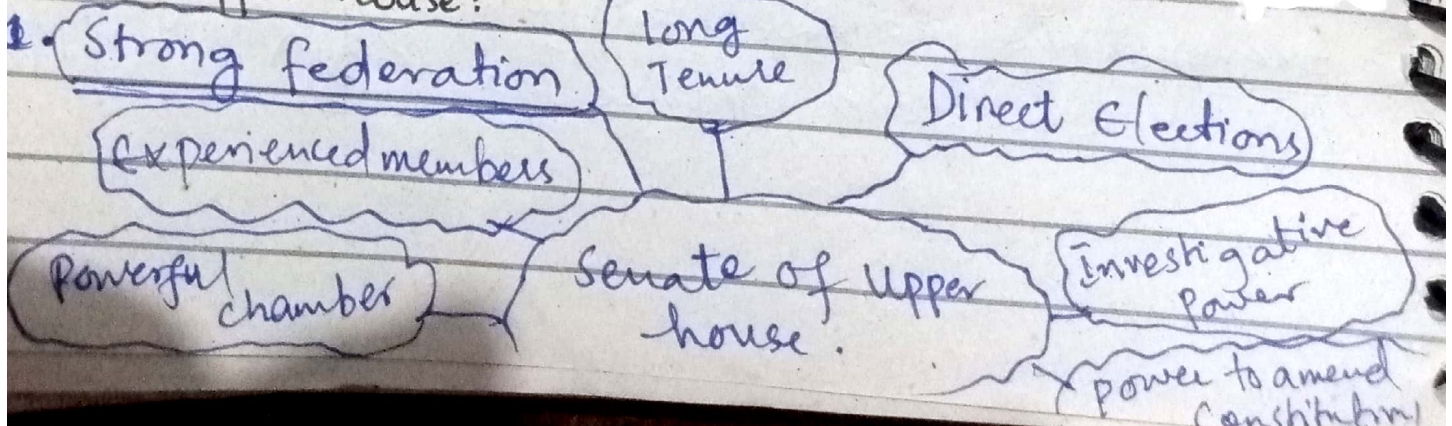 ouse?
1. Strong federation
long
Tenure
Direct Elections
experienced members
Powerful
chamber
Senate of Upper
house.
investigative
power
power to amend
Constitution